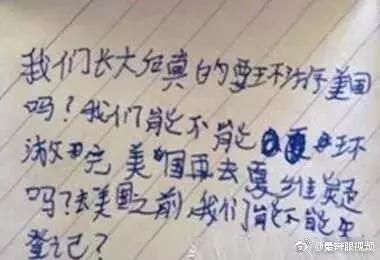 我们长大后真的要环游美国
吗?我们能不能环
游完美国再去夏维疑
吗?去美国之前,我们能不能先
登记?
@最辣眼视频